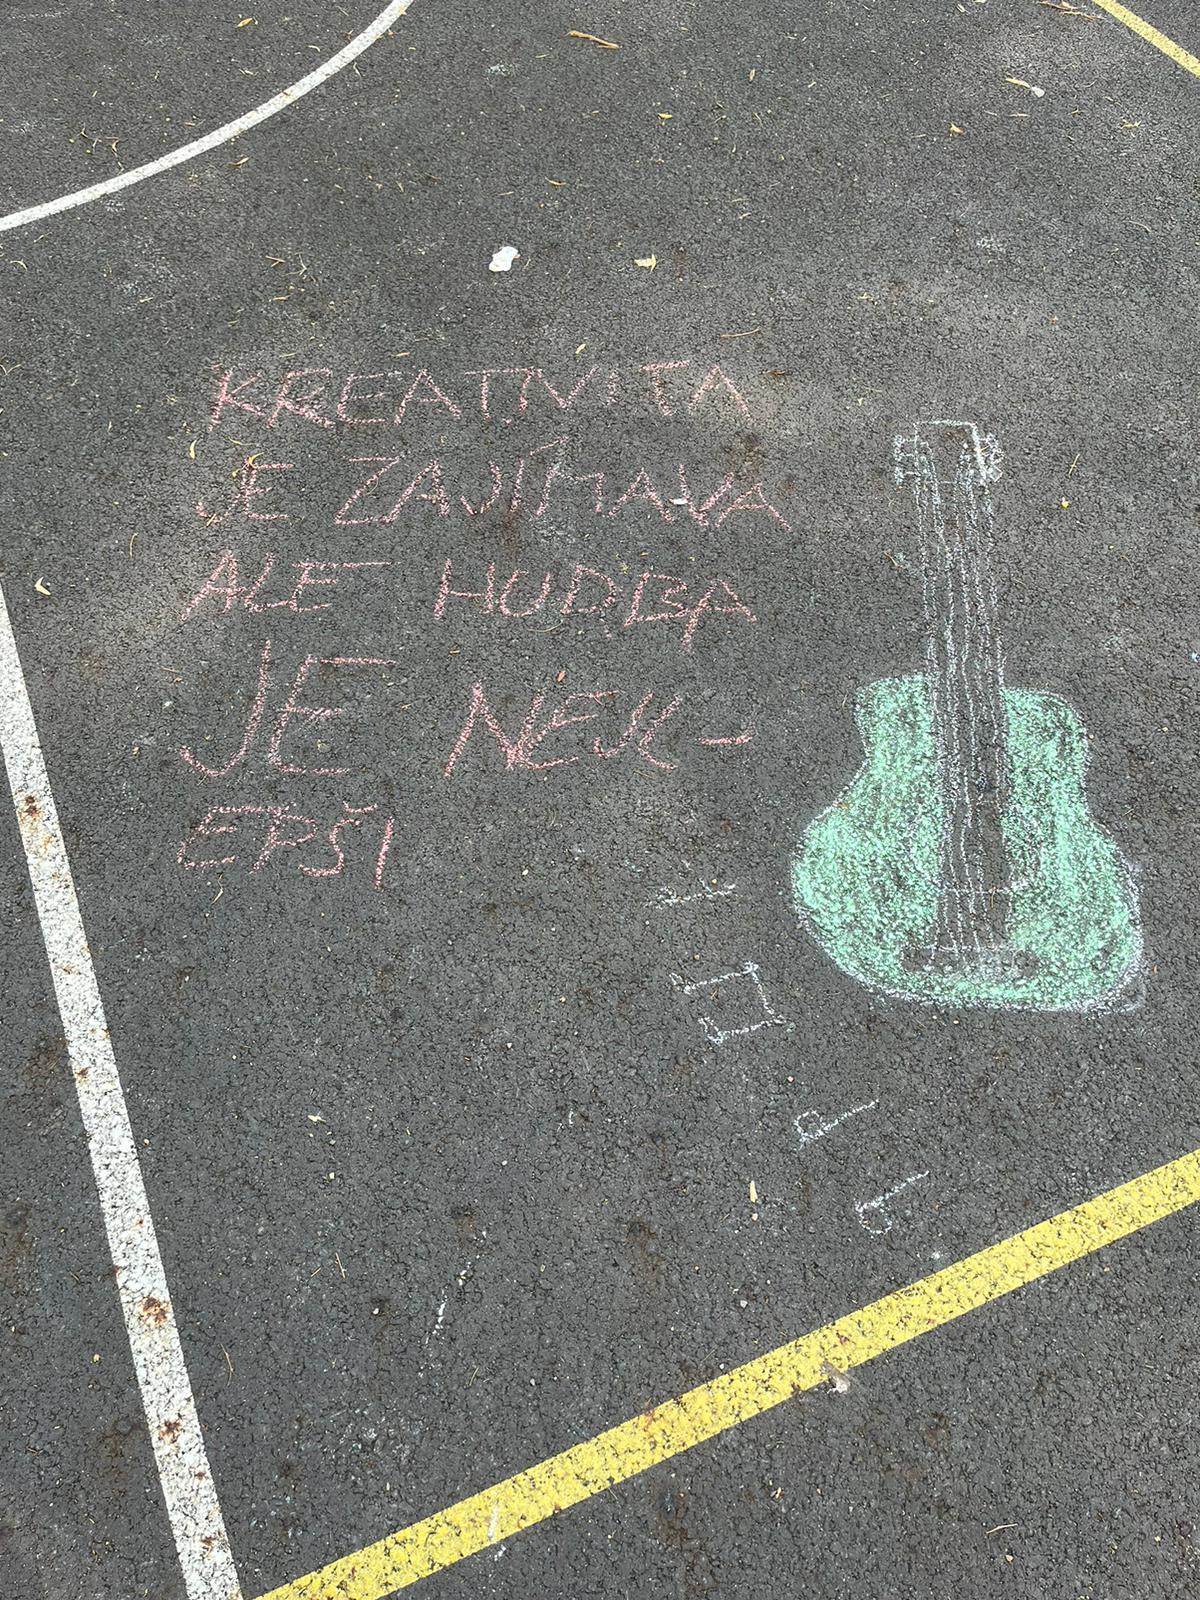 KREATIVITA
JE ZAJÍMAVA
ALE HUDBA
JE NEJL-
EPŠI